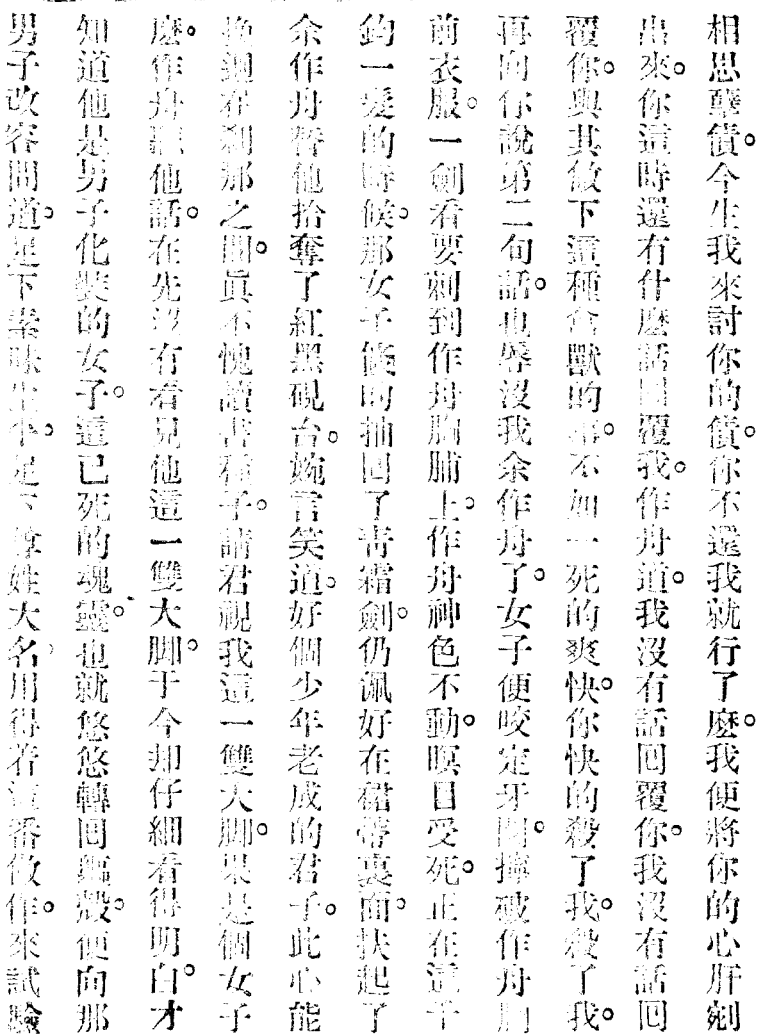 相思孽債。今生我來討你的債。你不還我就行了麽。我便將你的心肝剜
出來。你這時還有什麽話回覆我。作舟道。我沒有話回覆你。我沒有話回
覆你。與其做下這種禽獸的事。不如一死的爽快。你快的殺了我。殺了我。
再向你說第二句話。也辱沒我余作舟了。女子便咬定牙關。撕破作舟胸
前衣服。一劍看要刺到作舟胸脯上。作舟神色不動。瞑目受死。正在這千
鈞一髮的時候。那女子倏的抽回了青霜劍。仍佩好在裙帶裏面。扶起了
余作舟。替他拾奪了紅黑硯台。婉言笑道。好個少年老成的君子。此心能
挽回在刹那之間。眞不愧讀書種子。請君視我這一雙大脚。果是個女子
麽。作舟聽他話。在先沒有看見他這一雙大脚。于今却仔細看得明白。才
知道他是男子化裝的女子。這已死的魂靈。也就悠悠轉回軀殼。便向那
男子改容問道。足下素昧生平。足下尊姓大名。用得着這番做作。來試驗